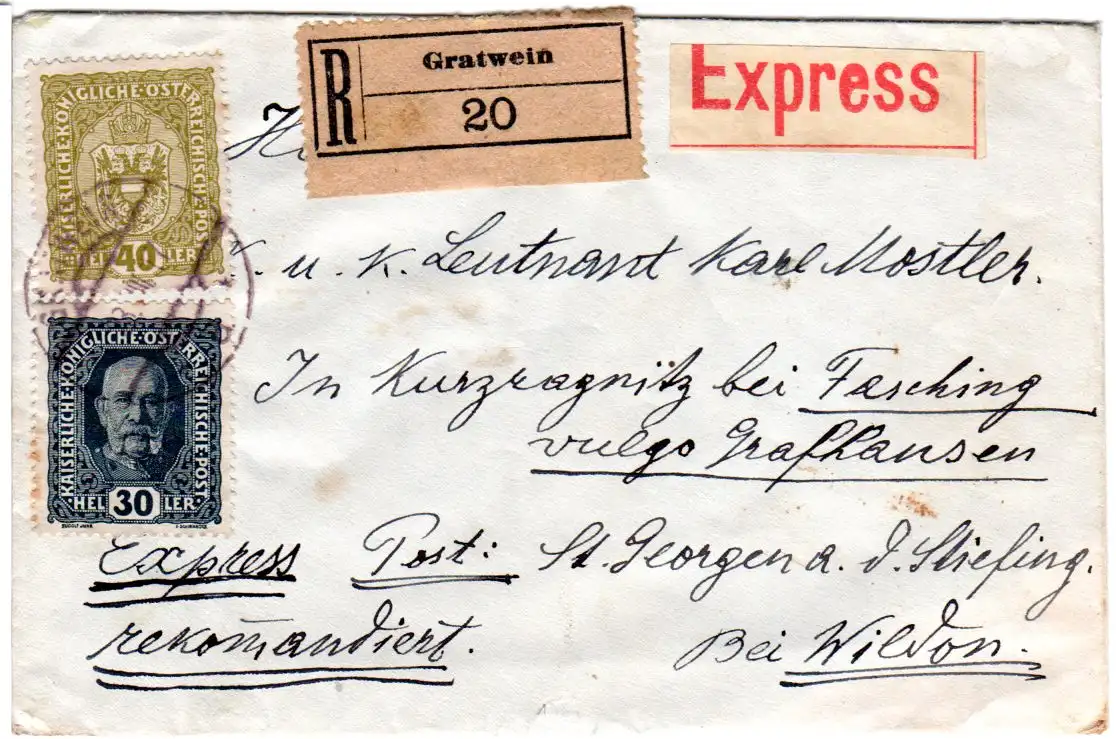 KAISERLICHE·KÖNIGLICHE·ÖSTERREICHISCHE·POST
HEL 40 LER
R
Gratwein
20
Express
K. u. K. Leutnant Karl Mostler.
KAISERLICHE·KÖNIGLICHE·ÖSTERREICHISCHE·POST
HEL 30 LER
In Kurzragnitz bei Fasching
vulgo Grafhansen
Express Post: St. Georgen a. d. Stiefing.
rekom̄andiert. Bei Wildon.